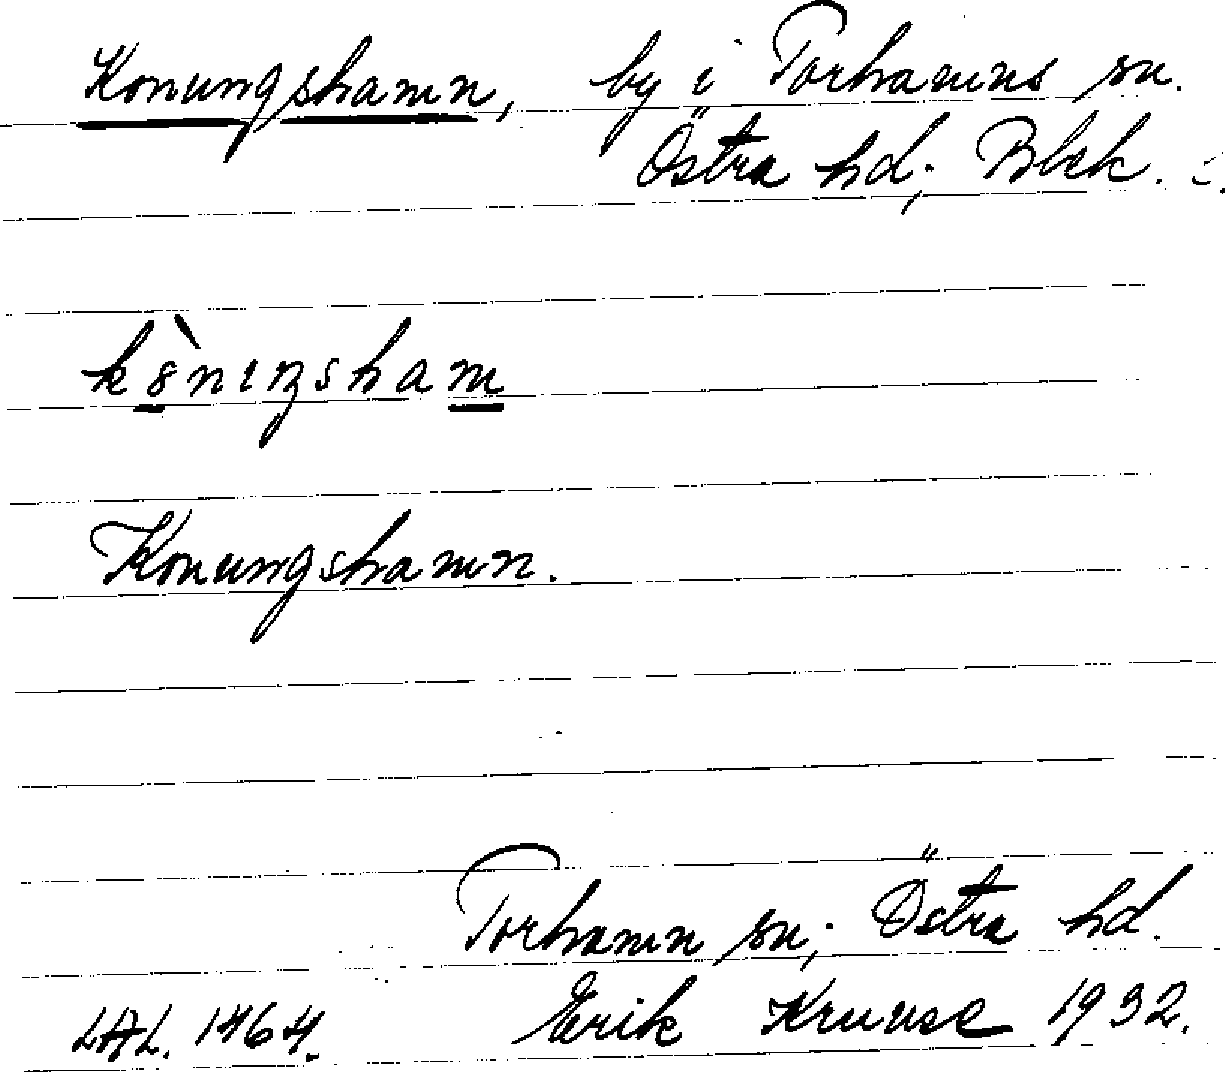 Konungshamn, by i Torhamns sn.
Östra hd; Blek. l.
Konungshamn.
Torhamn sn; Östra hd.
LAL. 1464. Erik Kruuse 1932.